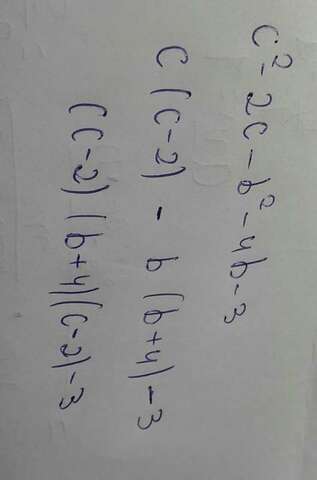 c² - 2c - b² - 4b - 3
c (c-2) - b (b+4) - 3
(c-2) (b+4)(c-2) - 3